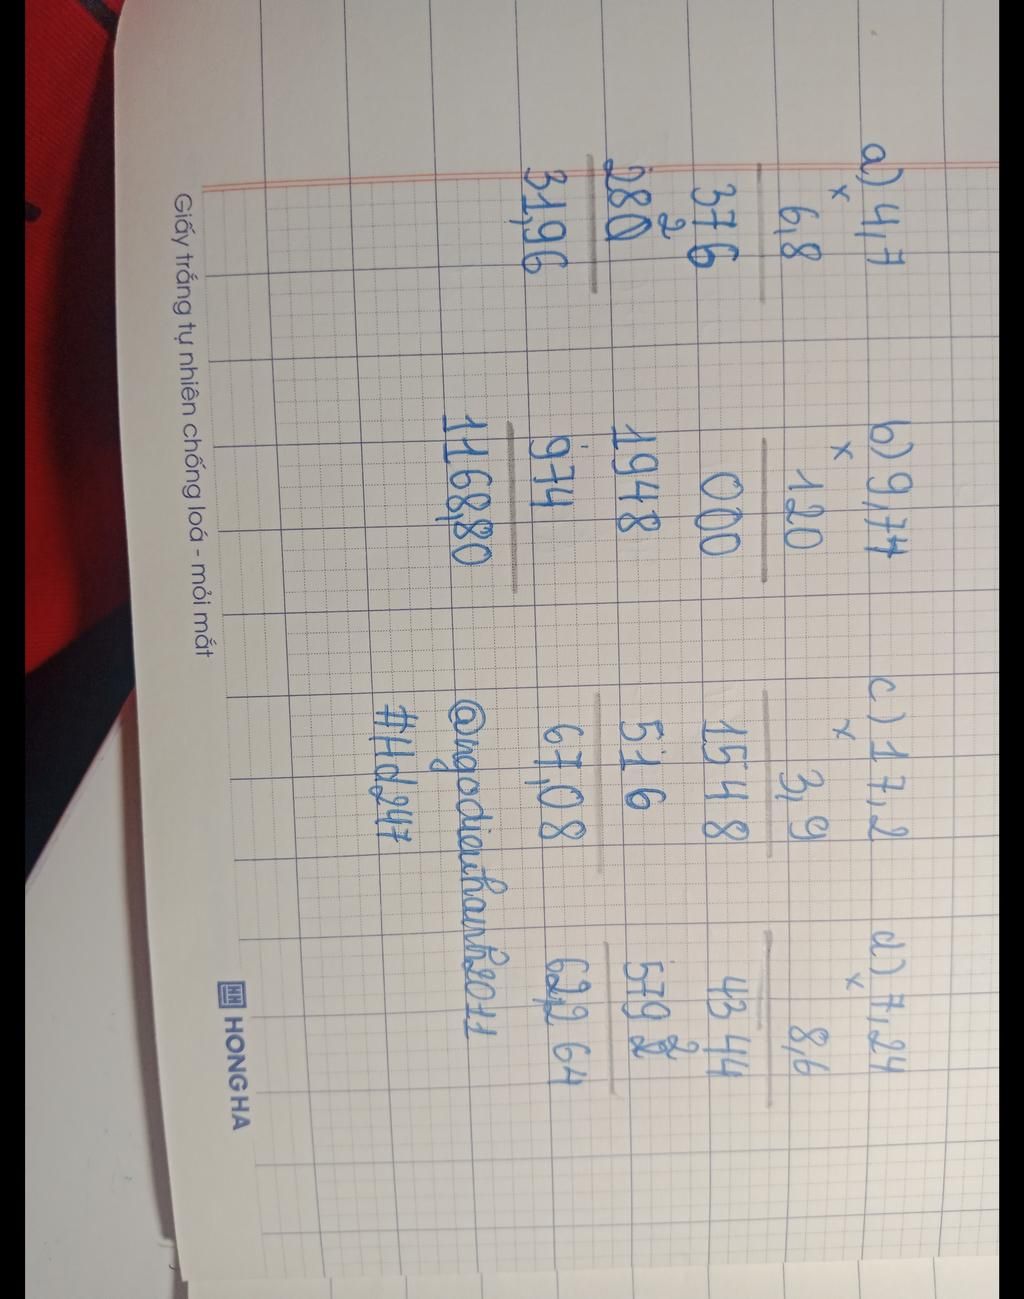 a) 4,7 b) 9,74 c) 17,2 d) 7,24
× × × ×
6,8 120 3,9 8,6
376 000 1548 4344
280 1948 516 579
31,96 974 67,08 62,264
1168,80 @ngodieuhanh2011
#Hd247
Giấy trắng tự nhiên chống loá - mỏi mắt
HH HONG HA